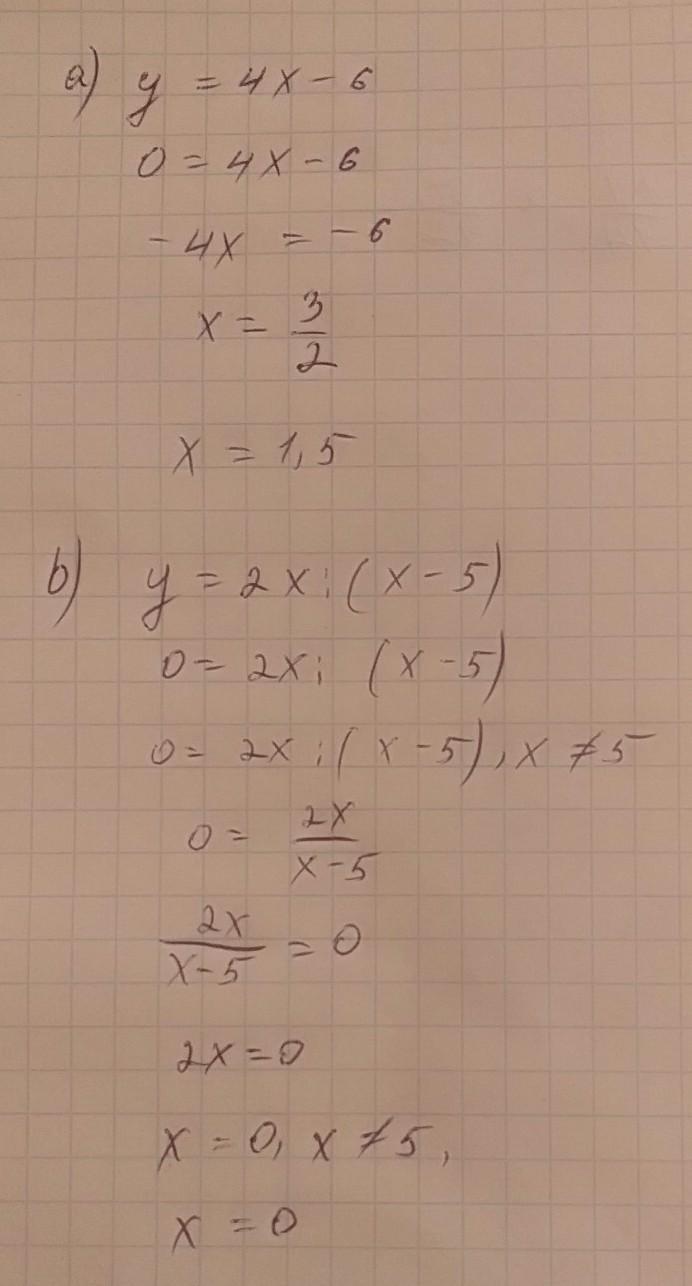 a) y = 4x - 6
0 = 4x - 6
-4x = -6
x = 3/2
x = 1,5
b) y = 2x : (x - 5)
0 = 2x : (x - 5)
0 = 2x : (x - 5), x ≠ 5
0 = 2x/(x - 5)
2x/(x - 5) = 0
2x = 0
x = 0, x ≠ 5,
x = 0